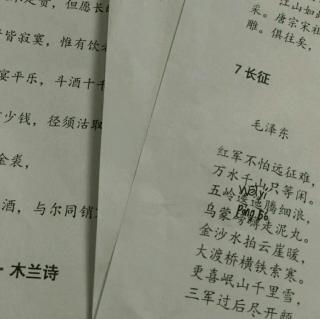 足贵，但愿长
皆寂寞，惟有饮
宴平乐，斗酒十千
少钱，径须沽取
金裘，
酒，与尔同销
·木兰诗
江山如此
采。唐宗宋祖
雕。俱往矣，
7 长征
毛泽东
红军不怕远征难，
万水千山只等闲。
wēi yí
五岭逶迤腾细浪，
páng bó
乌蒙磅礴走泥丸。
金沙水拍云崖暖，
大渡桥横铁索寒。
更喜岷山千里雪，
三军过后尽开颜